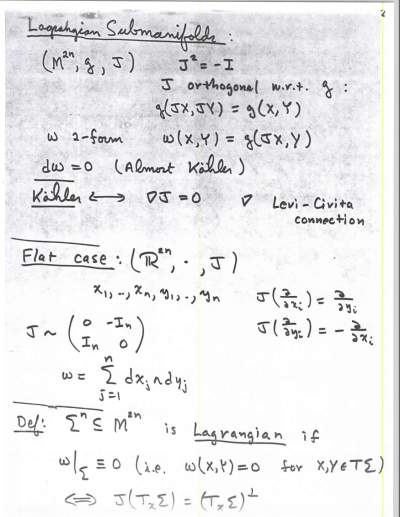 2
Lagrangian Submanifolds :
(M²ⁿ, g, J) J² = -I
J orthogonal w.r.t. g :
g(JX, JY) = g(X, Y)
ω 2-form ω(X, Y) = g(JX, Y)
dω = 0 (Almost Kähler)
Kähler ⟷ ∇J = 0 ∇ Levi-Civita
connection
Flat case : (ℝ²ⁿ, ·, J)
x₁, .., xₙ, y₁, .., yₙ J(∂/∂xᵢ) = ∂/∂yᵢ
J ~ (0 -Iₙ
Iₙ 0) J(∂/∂yᵢ) = -∂/∂xᵢ
ω = Σⁿⱼ₌₁ dxⱼ ∧ dyⱼ
Def: Σⁿ ⊆ M²ⁿ is Lagrangian if
ω|_Σ ≡ 0 (i.e. ω(X,Y) = 0 for X,Y ∈ TΣ)
⟺ J(TₓΣ) = (TₓΣ)^⊥